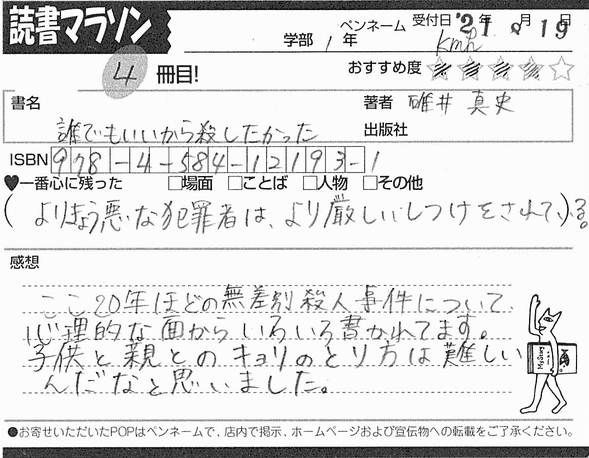 読書マラソン
学部 1 年 ペンネーム kmh 受付日 '21年 8月19日
4 冊目!
おすすめ度 ★★★★☆
書名 誰でもいいから殺したかった
著者 碓井 真史
出版社
ISBN 978-4-584-12193-1
♥一番心に残った □場面 □ことば □人物 □その他
(より凶悪な犯罪者は、より厳しいしつけをされている。)
感想
ここ20年ほどの無差別殺人事件について
心理的な面からいろいろ書かれてます。
子供と親とのキョリのとり方は難しい
んだなと思いました。
●お寄せいただいたPOPはペンネームで、店内で掲示、ホームページおよび宣伝物への転載をご了承ください。